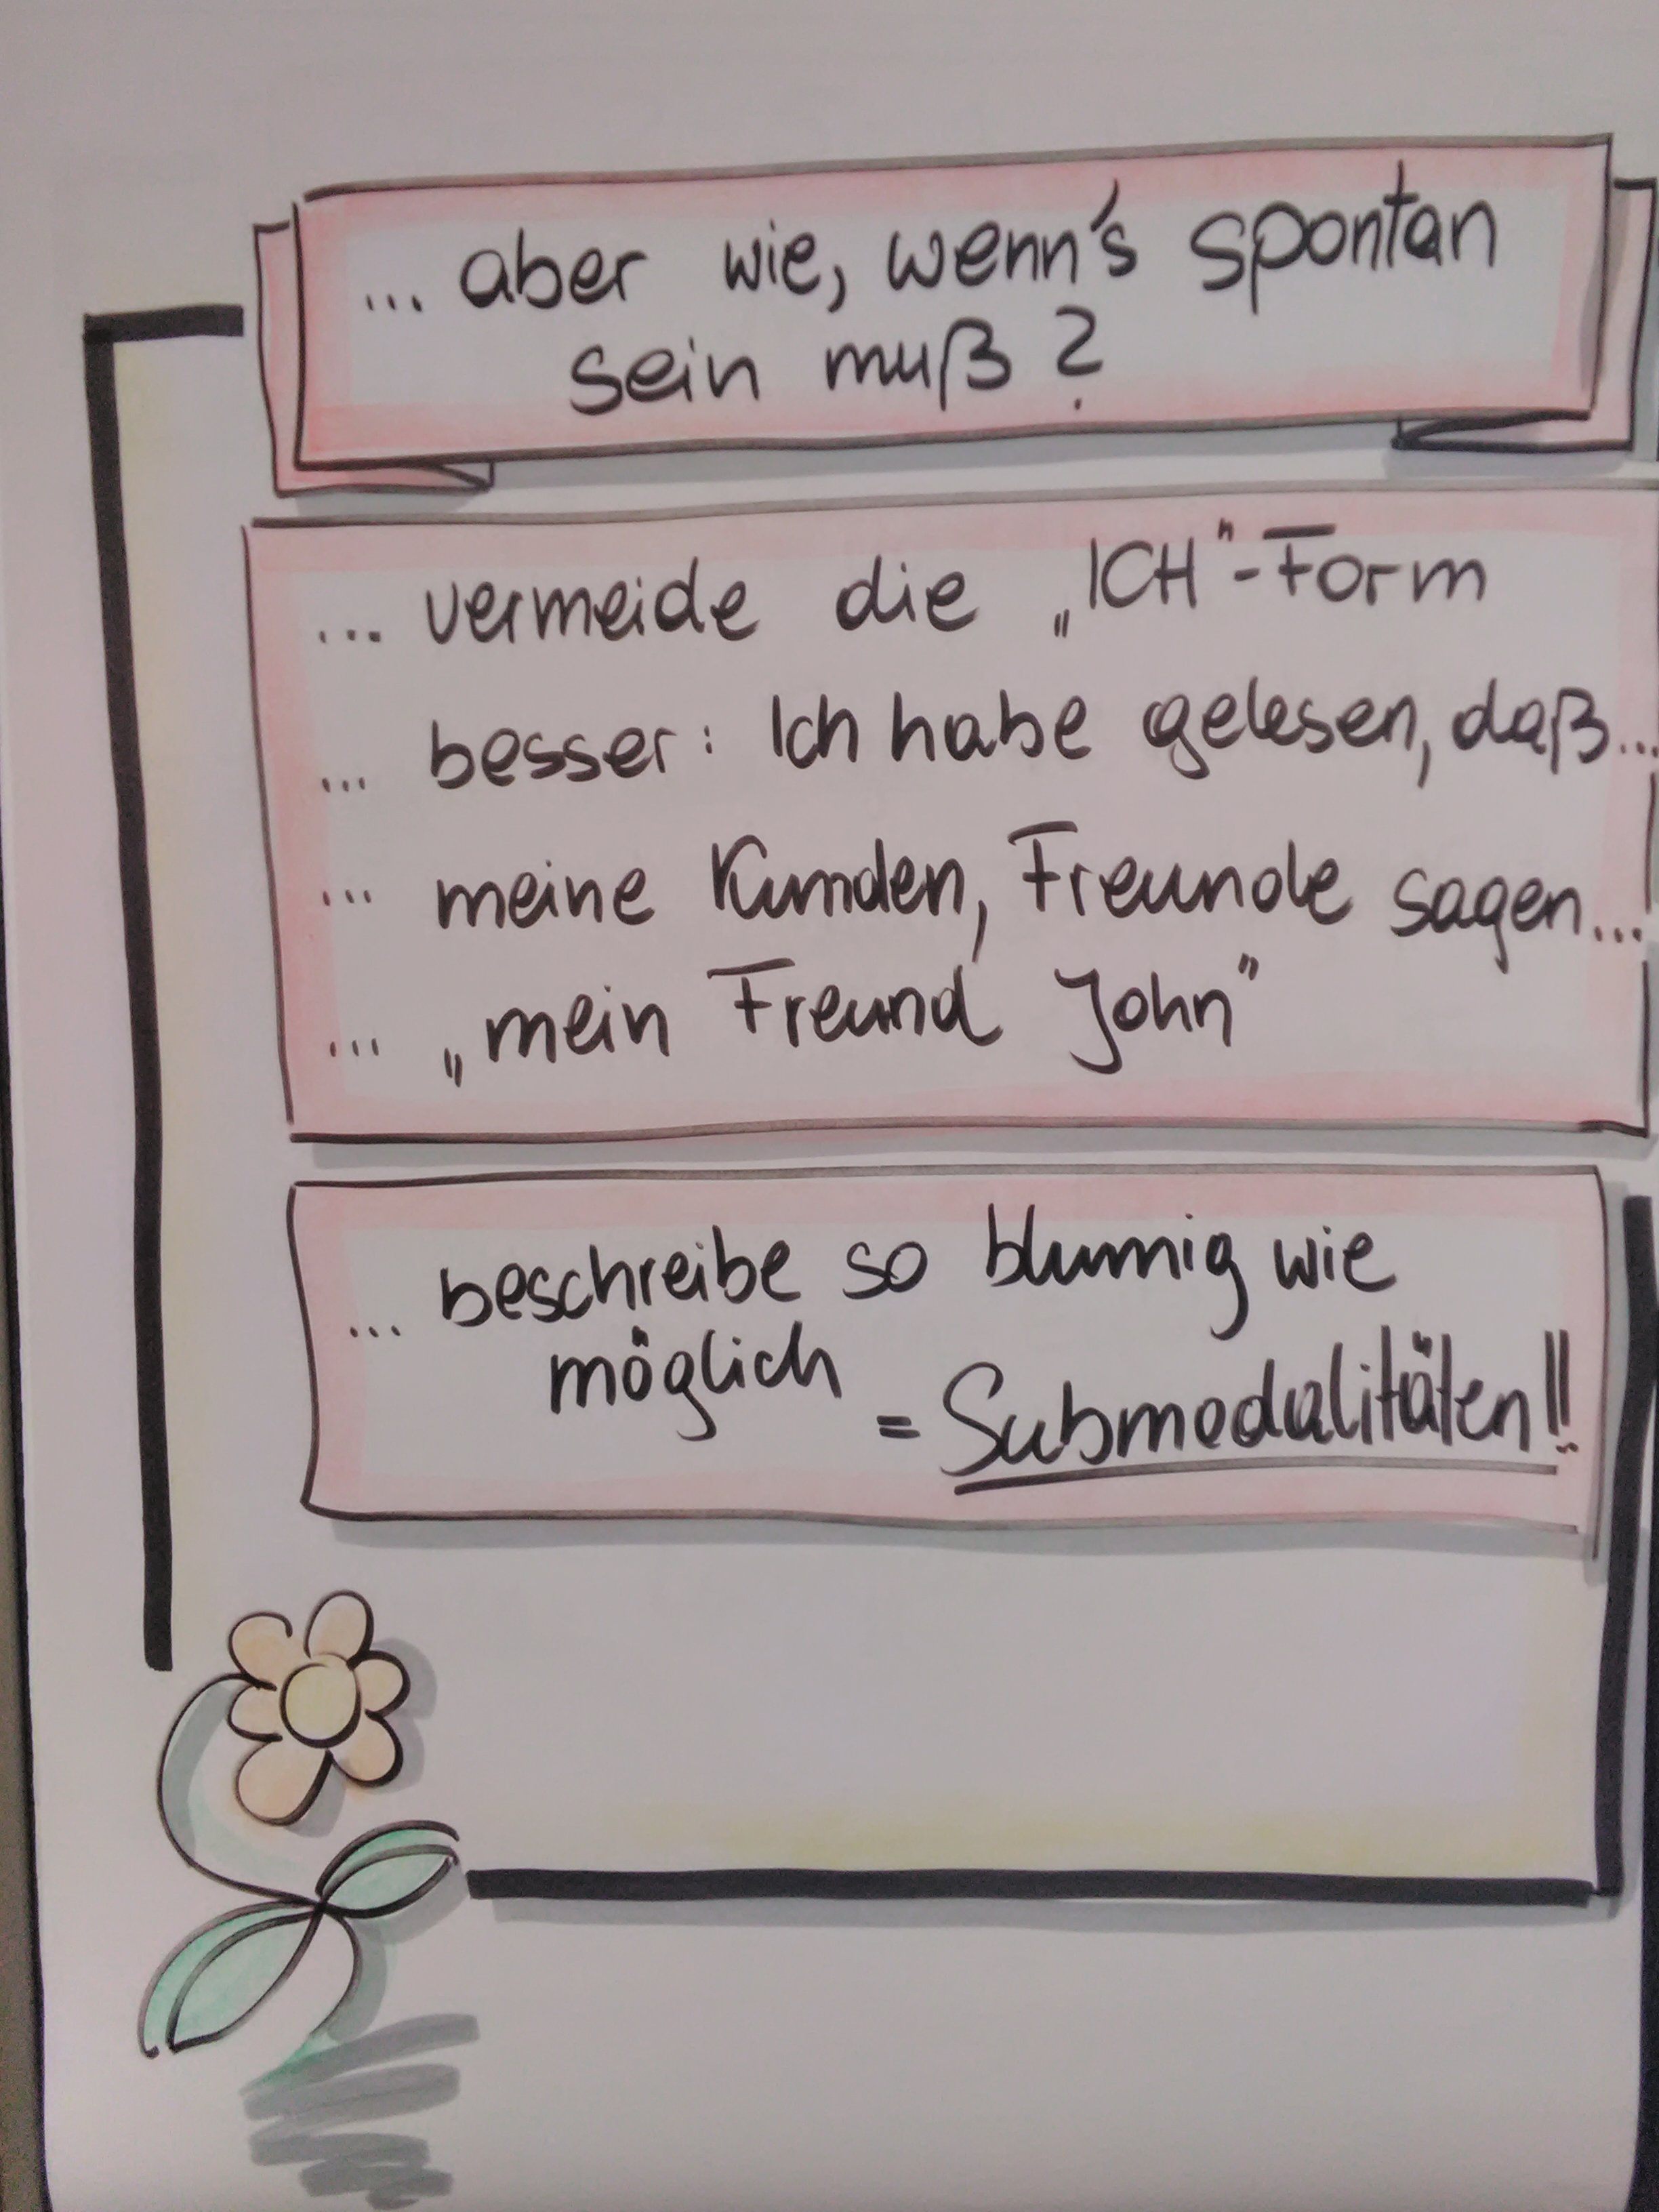 ... aber wie, wenn's spontan
sein muß?
... vermeide die „ICH"-Form
... besser: Ich habe gelesen, daß...
... meine Kunden, Freunde sagen...
... „mein Freund John"
... beschreibe so blumig wie
möglich = Submodalitäten!!